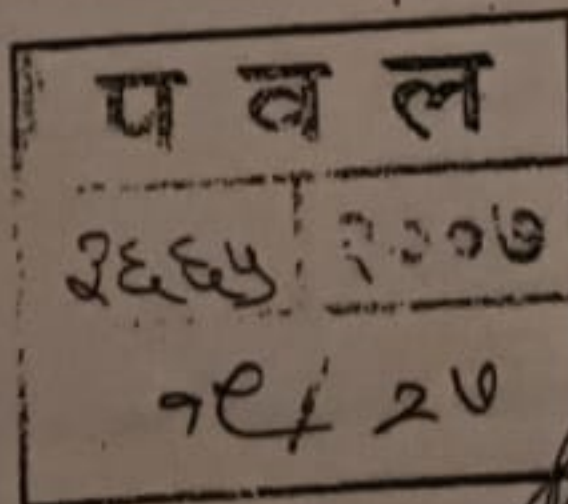 प व ल
३६६५ २००७
१९/ २७